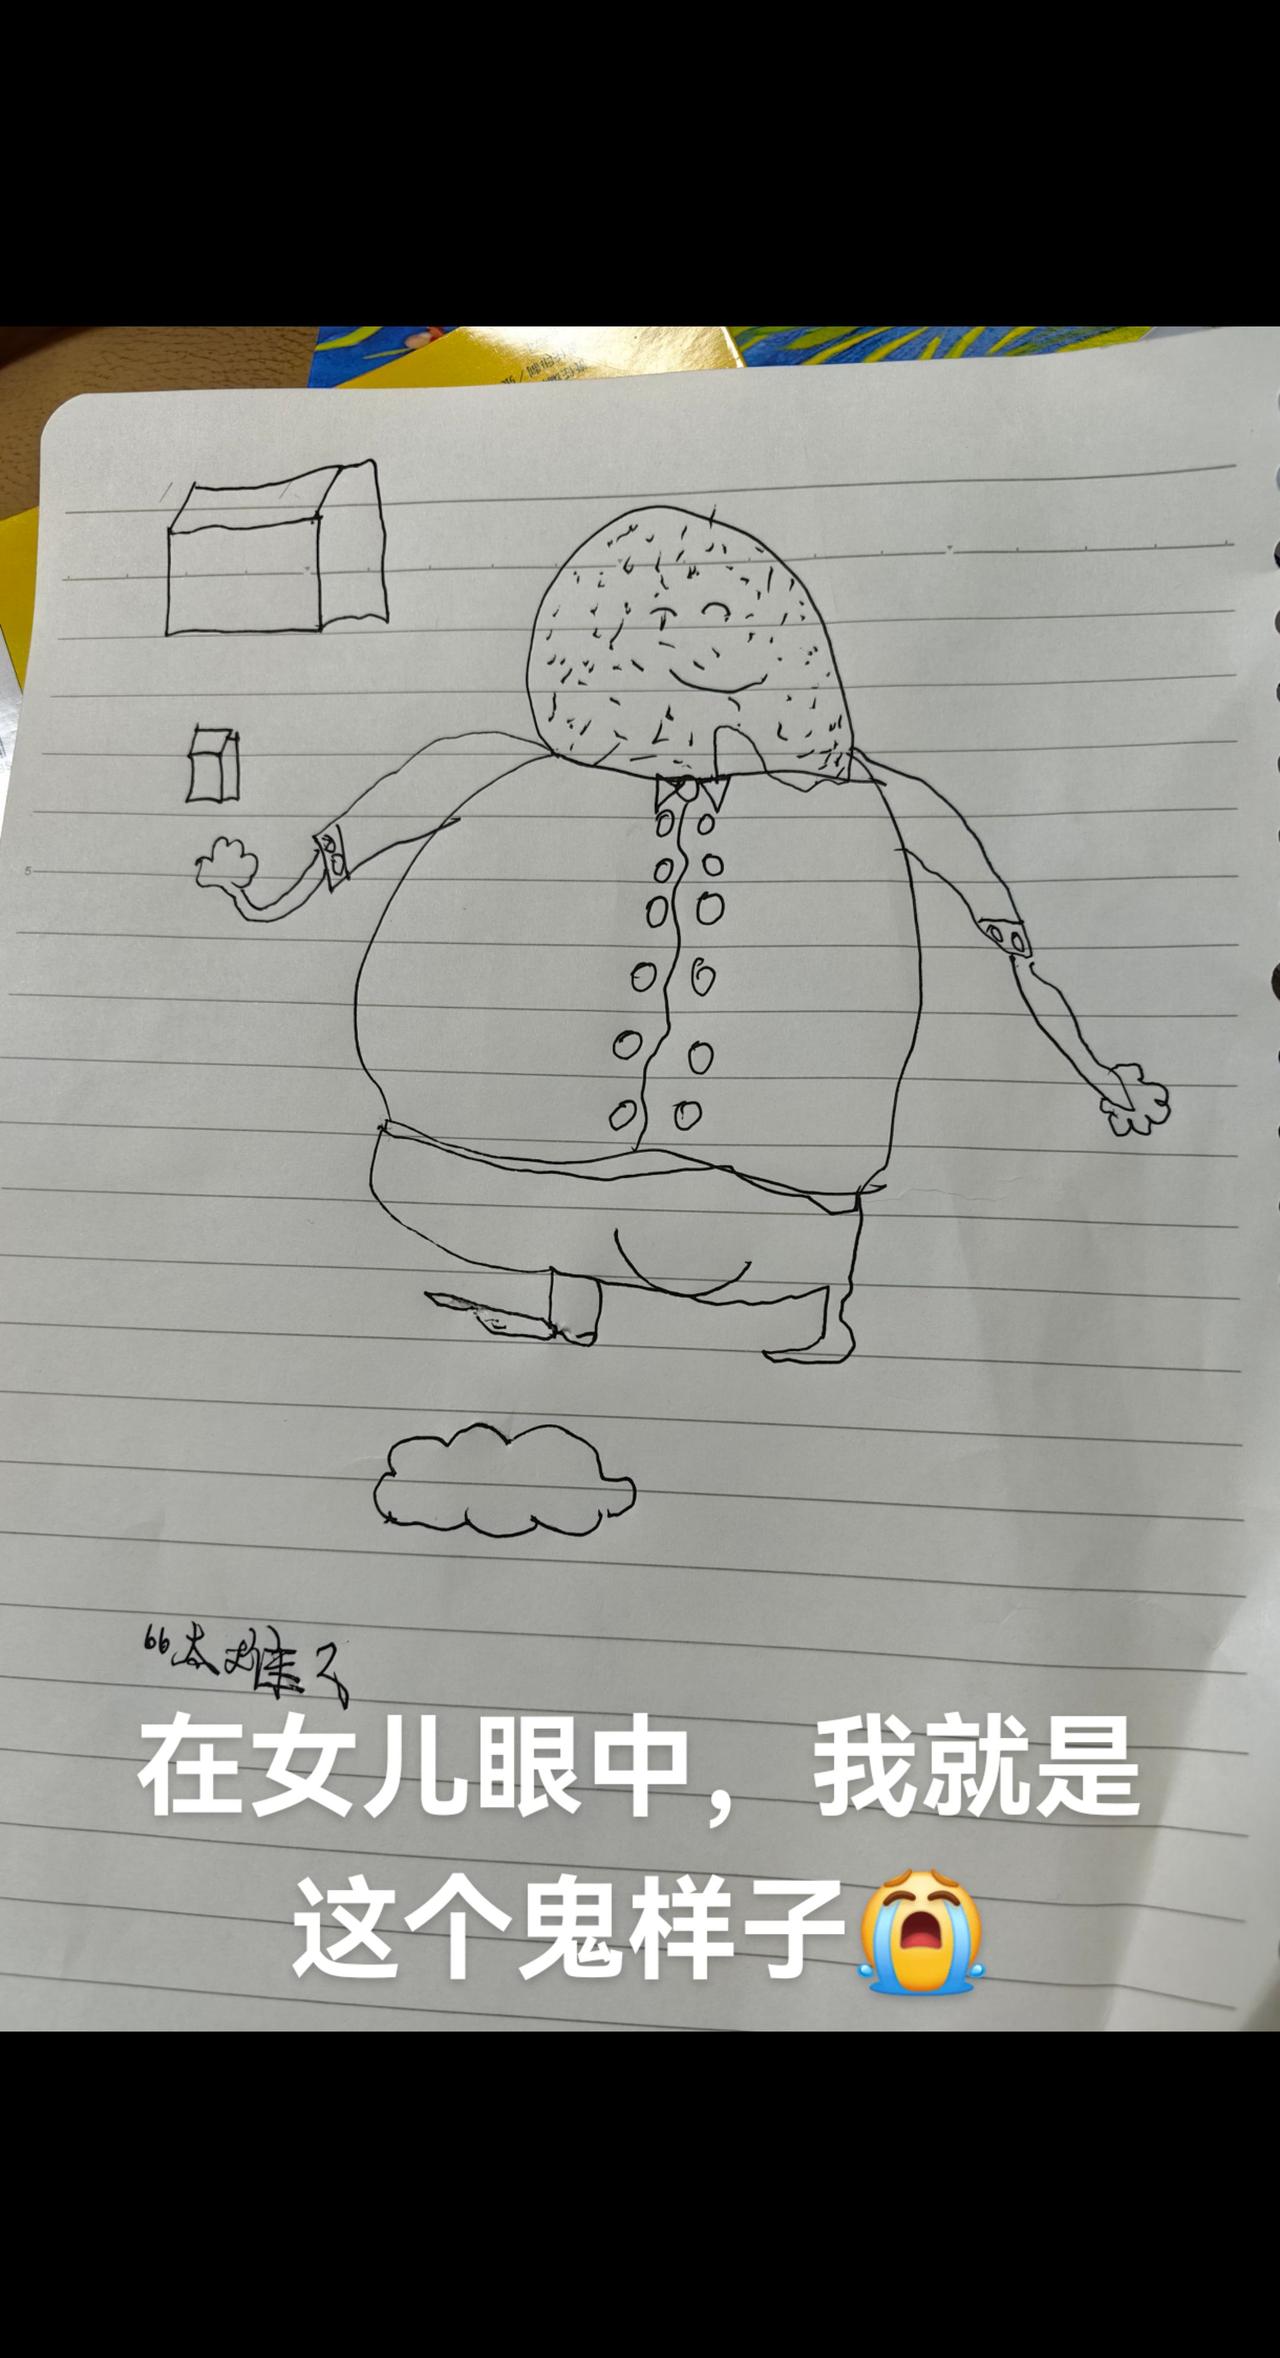 “太难了
在女儿眼中，我就是
这个鬼样子😭